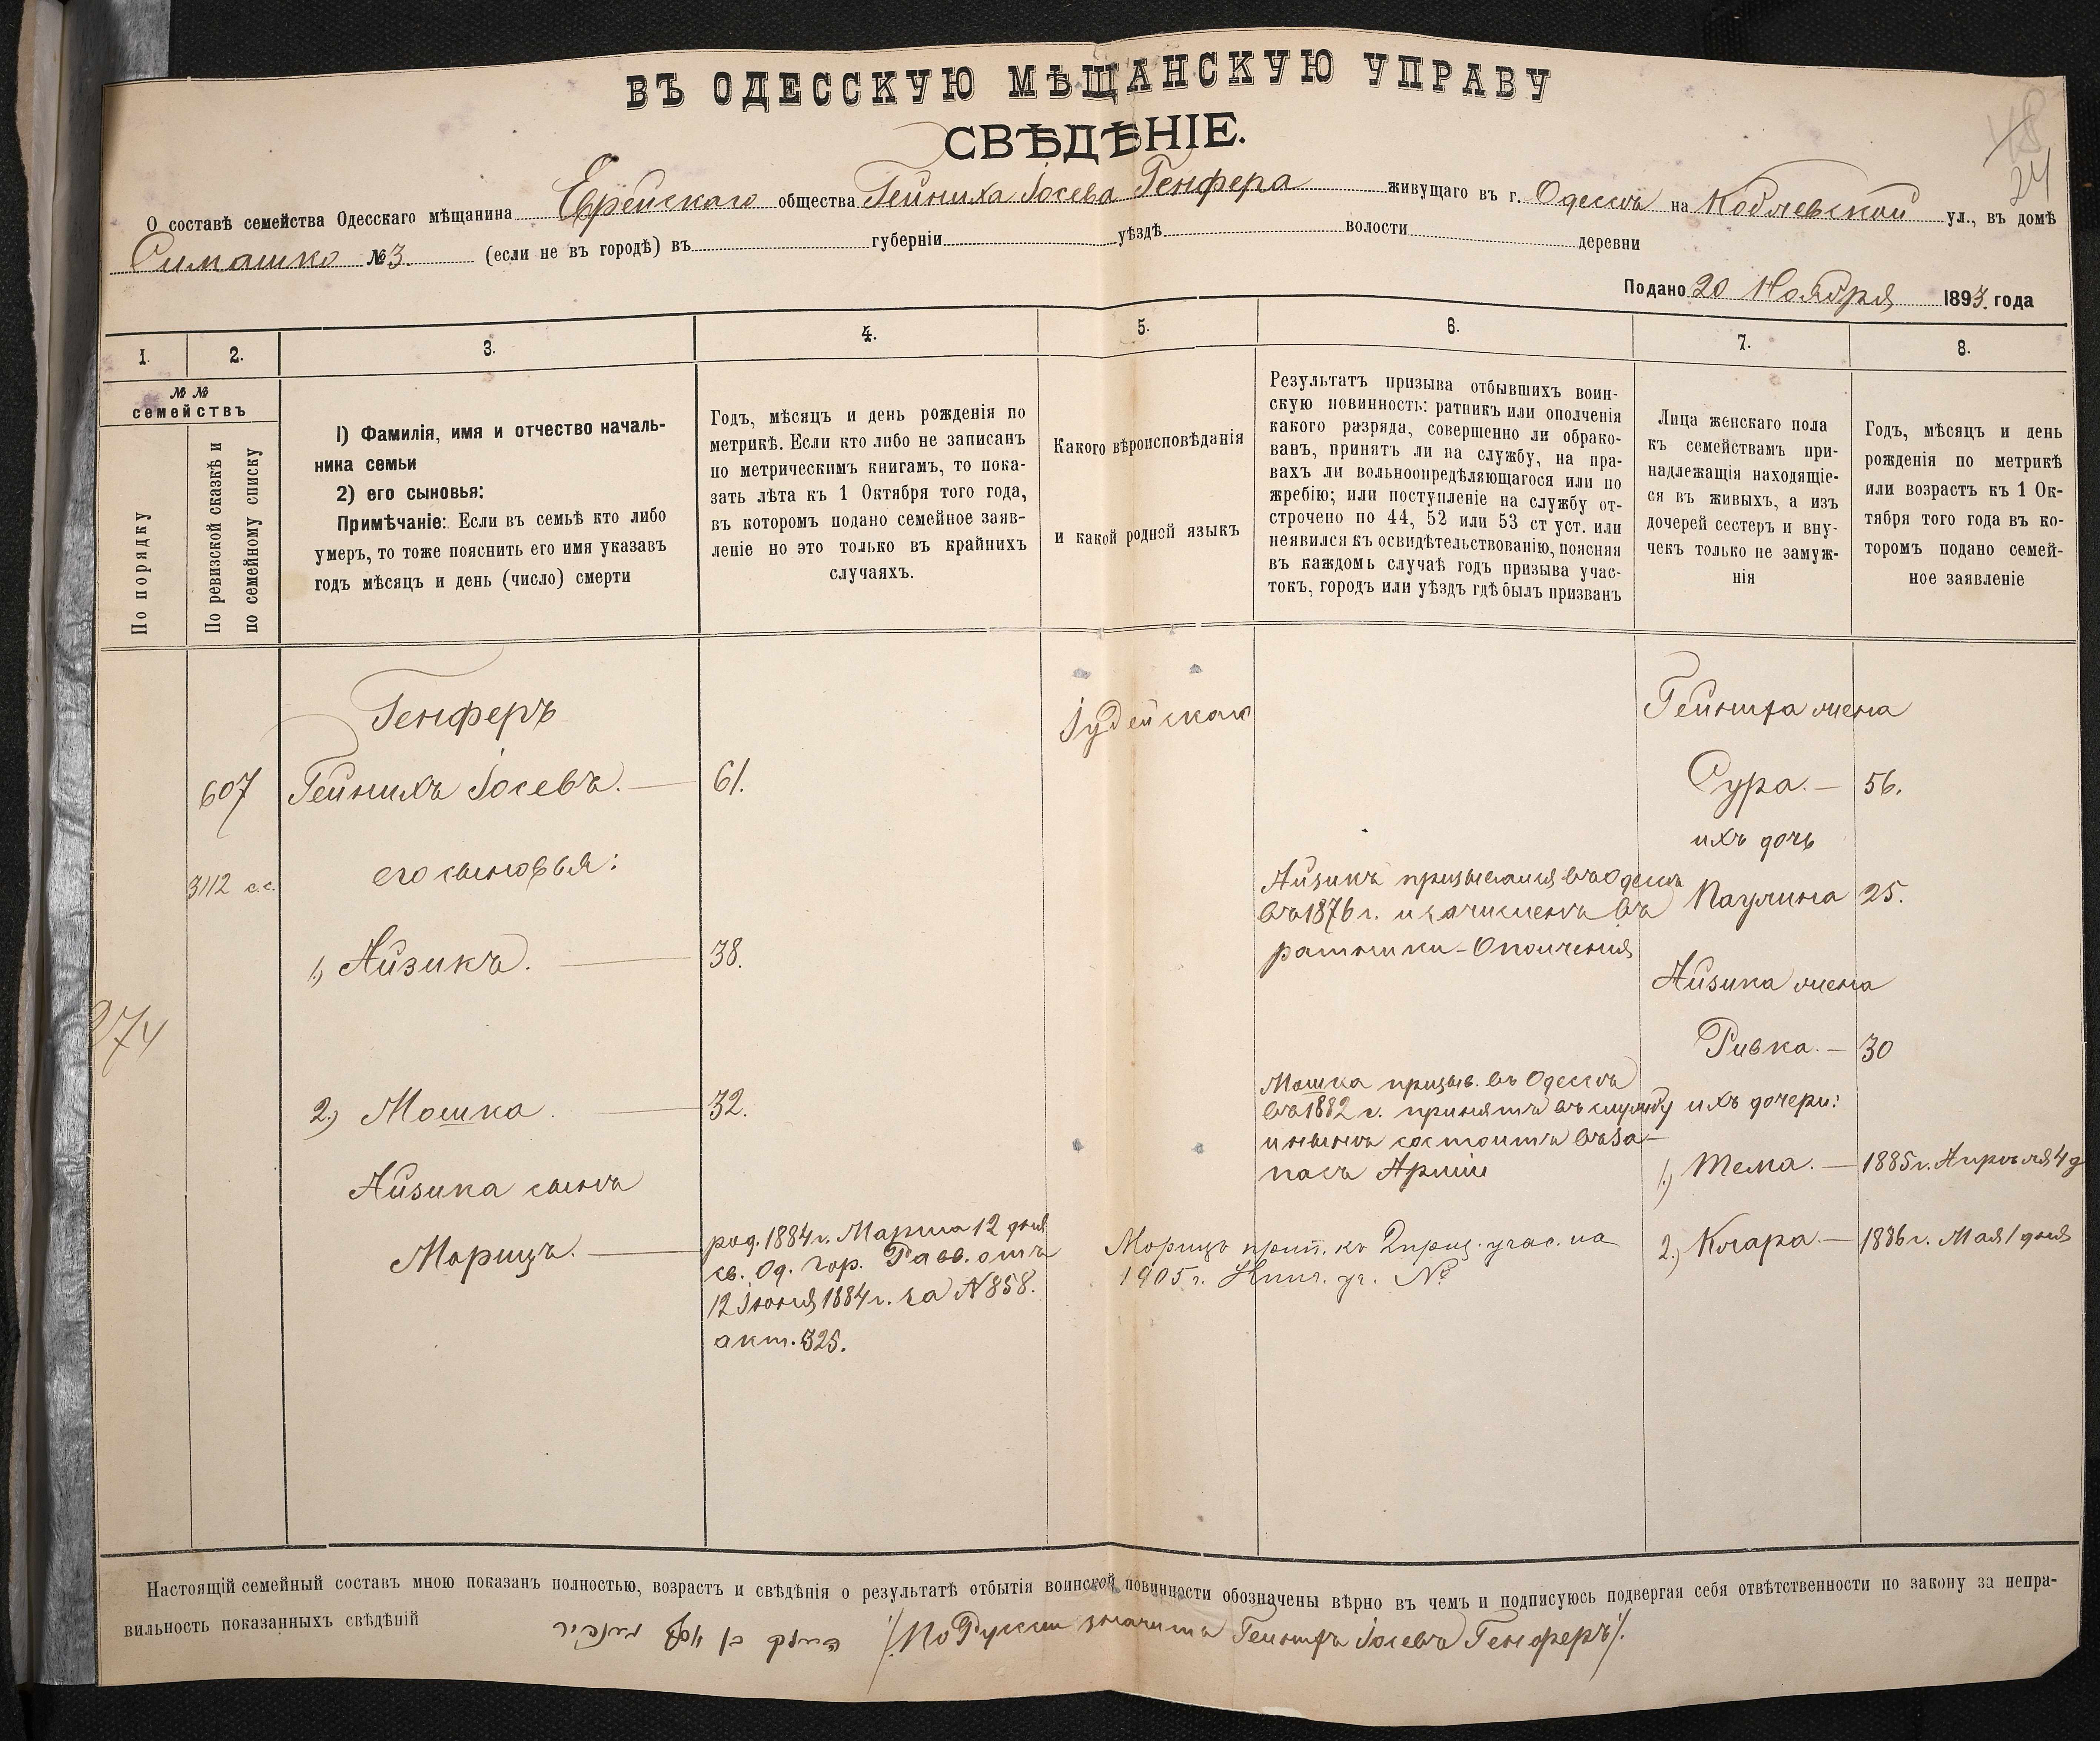 ВЪ ОДЕССКУЮ МѢЩАНСКУЮ УПРАВУ
СВѢДѢНІЕ.
24
О составѣ семейства Одесскаго мѣщанина Еврейскаго общества Гейниха Іосева Генфера живущаго въ г. Одессѣ на Коблевской ул., въ домѣ
Симашко №3. (если не въ городѣ) въ губерніи уѣздѣ волости деревни
Подано 20 Ноября 1893. года
1. 2. 3. 4. 5. 6. 7. 8.
№ №
семействъ
По порядку
По ревизской сказкѣ и
по семейному списку
1) Фамилія, имя и отчество началь-
ника семьи
2) его сыновья:
Примѣчаніе: Если въ семьѣ кто либо
умеръ, то тоже пояснить его имя указавъ
годъ мѣсяцъ и день (число) смерти
Годъ, мѣсяцъ и день рожденія по
метрикѣ. Если кто либо не записанъ
по метрическимъ книгамъ, то пока-
зать лѣта къ 1 Октября того года,
въ которомъ подано семейное заяв-
леніе но это только въ крайнихъ
случаяхъ.
Какого вѣроисповѣданія
и какой родной языкъ
Результатъ призыва отбывшихъ воин-
скую повинность: ратникъ или ополченія
какого разряда, совершенно ли обрако-
ванъ, принятъ ли на службу, на пра-
вахъ ли вольноопредѣляющагося или по
жребію; или поступленіе на службу от-
строчено по 44, 52 или 53 ст уст. или
неявился къ освидѣтельствованію, поясняя
въ каждомъ случаѣ годъ призыва учас-
токъ, городъ или уѣздъ гдѣ былъ призванъ
Лица женскаго пола
къ семействамъ при-
надлежащія находящіе-
ся въ живыхъ, а изъ
дочерей сестеръ и вну-
чекъ только не замуж-
нія
Годъ, мѣсяцъ и день
рожденія по метрикѣ
или возрастъ къ 1 Ок-
тября того года въ ко-
торомъ подано семей-
ное заявленіе
Генферъ
607 Гейнихъ Іосевъ. — 61.
3112 с.с. его сыновья:
1.) Айзикъ. — 38.
274
2.) Мошка. — 32.
Айзика сынъ
Морицъ. —
род. 1884 г. Марта 12 дня
св. Од. Гор. Равв. отъ
12 Іюня 1884 г. за N 858.
акт. 325.
Іудейская
Айзикъ призывался въ Одессѣ
въ 1876 г. и зачисленъ въ
ратники-Ополченія
Мошка призыв. въ Одессѣ
въ 1882 г. принятъ въ службу
и нынѣ состоитъ въ за-
пасѣ Арміи
Морицъ прип. къ 2 приз. учас. на
1905 г.
Гейниха жена
Сура. — 56.
ихъ дочь
Паулина 25.
Айзика жена
Ривка. — 30
ихъ дочери:
1.) Тема. — 1885 г. Апрѣля 4 д
2.) Клара. — 1886 г. Мая 1 дня
Настоящій семейный составъ мною показанъ полностью, возрастъ и свѣдѣнія о результатѣ отбытія воинской повинности обозначены вѣрно въ чемъ и подписуюсь подвергая себя отвѣтственности по закону за непра-
вильность показанныхъ свѣдѣній
/По Русски значитъ Гейнихъ Іосевъ Генферъ/.